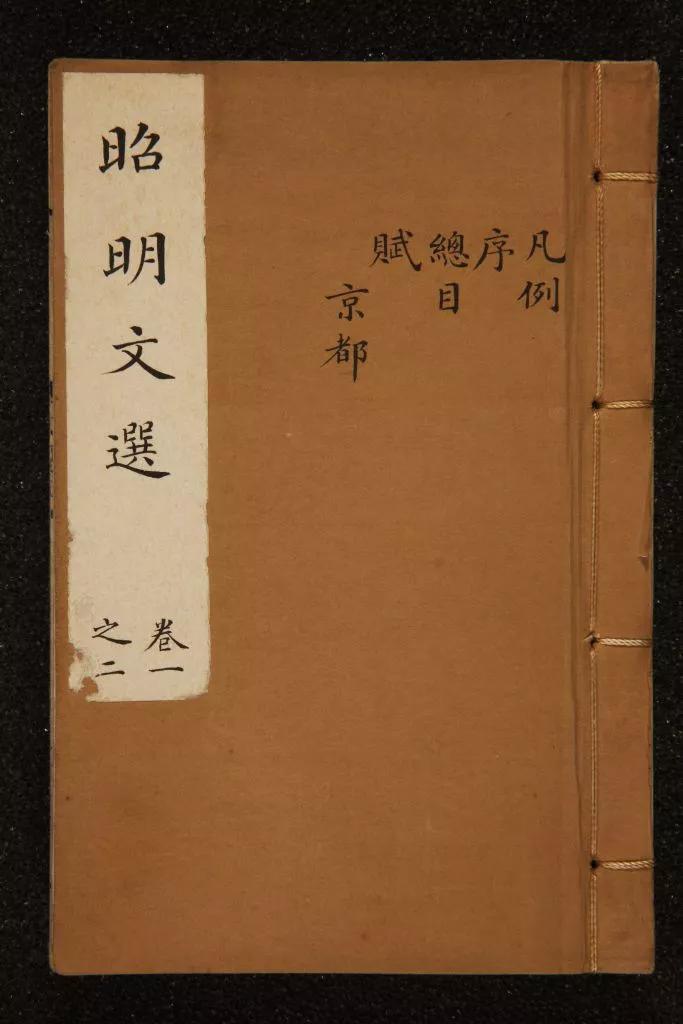 凡例
序
總目
賦
京都
昭明文選
卷一
之二